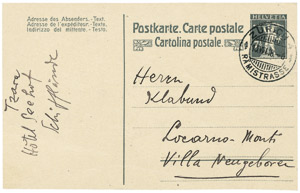 Adresse des Absenders. - Text.
Adresse de l'expéditeur. - Texte.
Indirizzo del mittente. - Testo.
Postkarte. Carte postale
Cartolina postale.
HELVETIA
ZÜRICH
RÄMISTRASSE
Tzara
Hôtel Seehof
Schifflände
Herrn
Klabund
Locarno-Monti
Villa Neugeboren